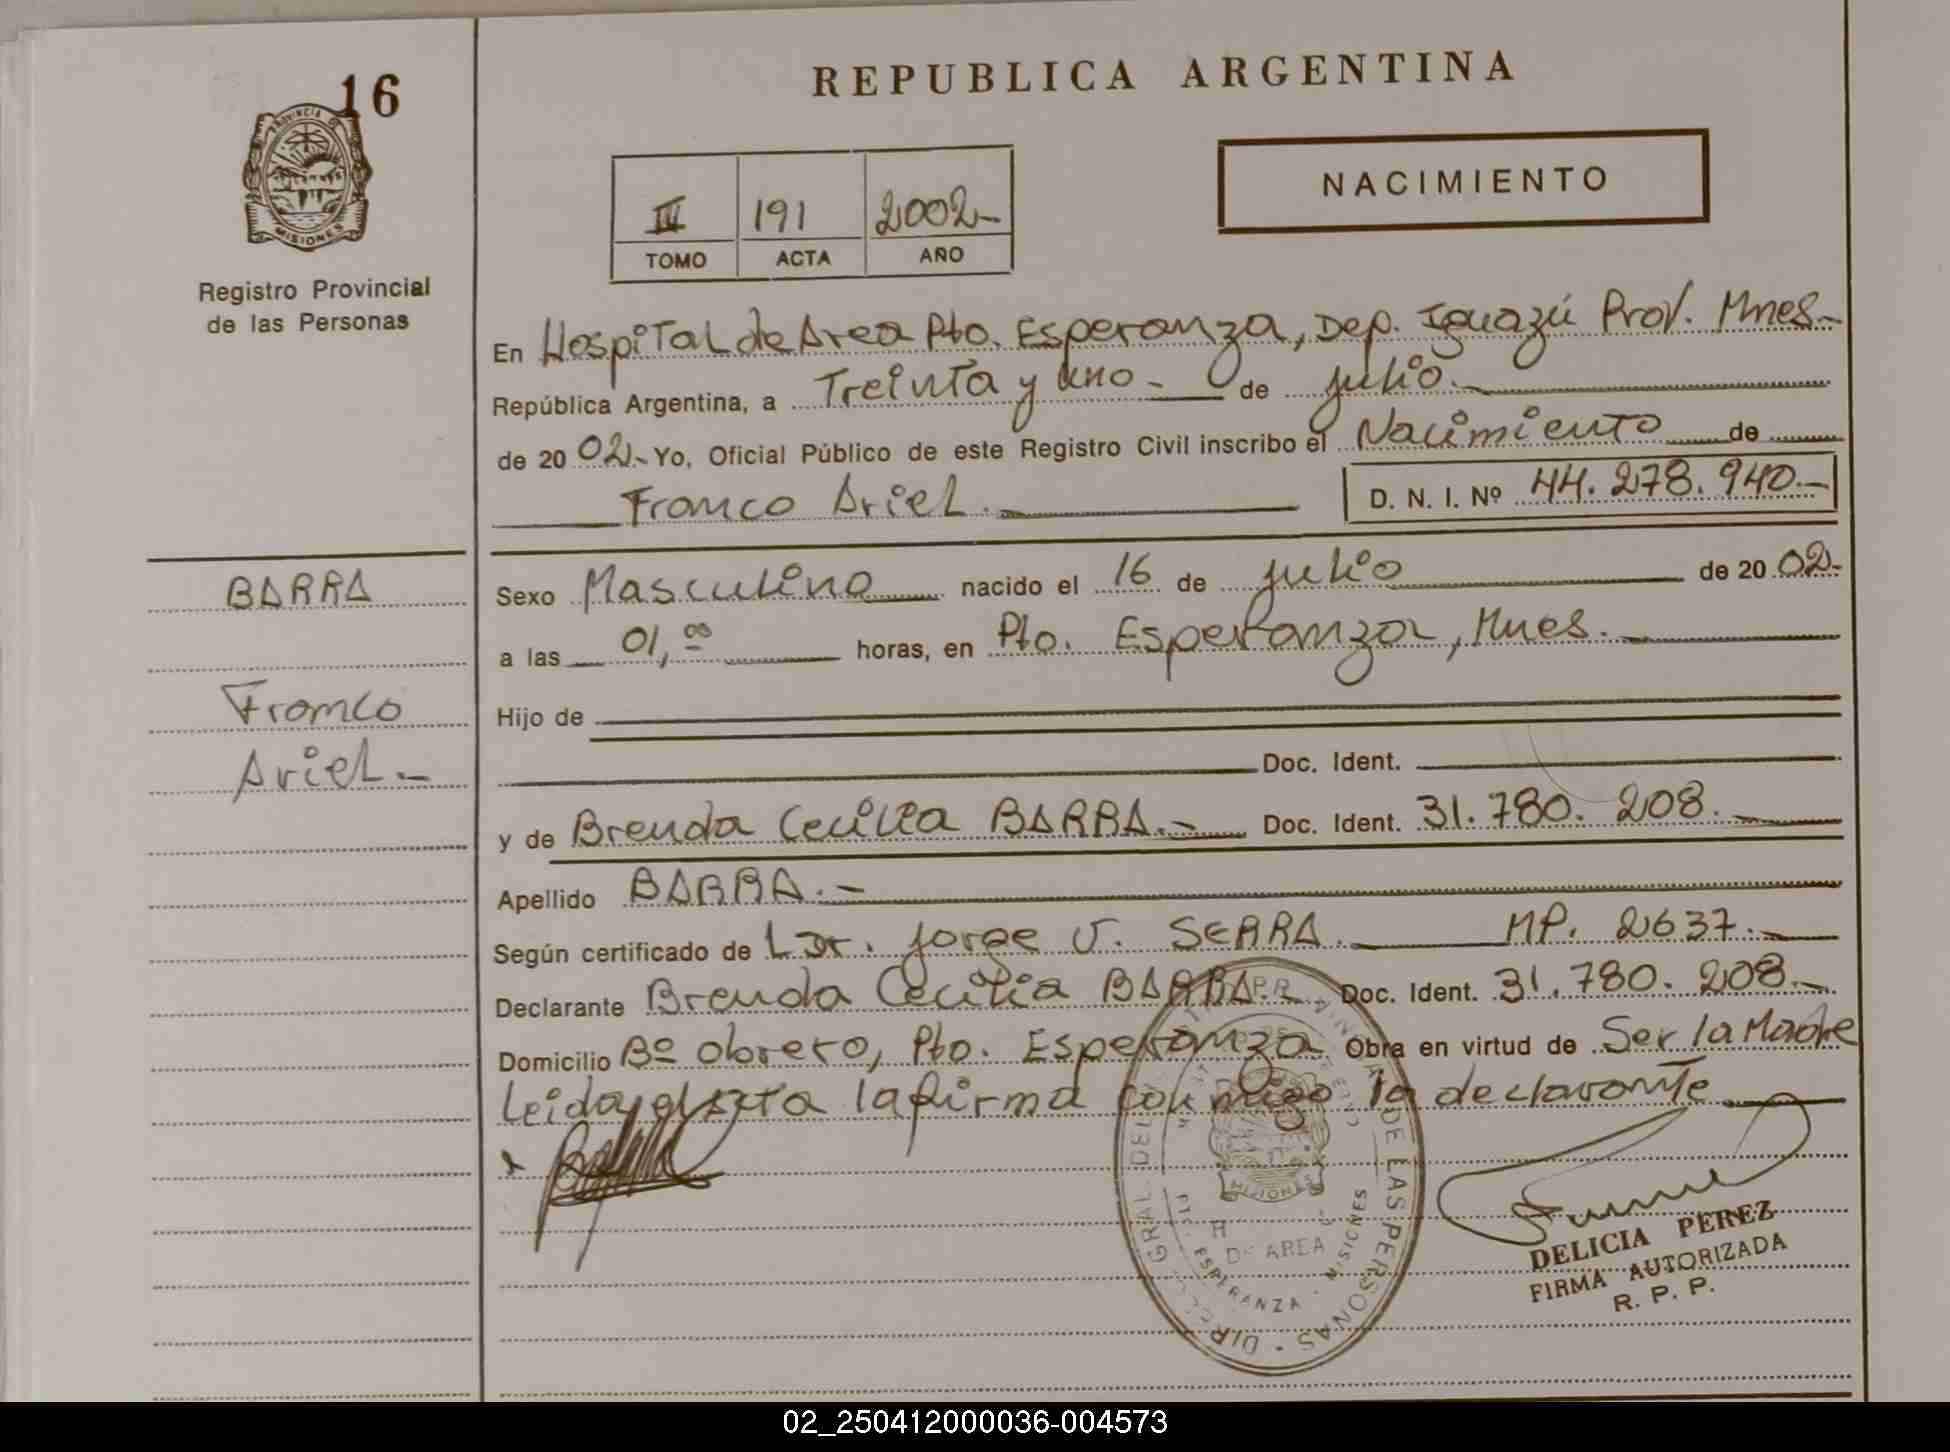 16
PROVINCIA DE
MISIONES
Registro Provincial
de las Personas
BARRA
Franco
Ariel.-
REPUBLICA ARGENTINA
NACIMIENTO
191 2002-
TOMO ACTA AÑO
En Hospital de Area Pto. Esperanza, Dep. Iguazú Prov. Mnes.-
República Argentina, a Treinta y uno.- de julio.-
de 2002.- Yo, Oficial Público de este Registro Civil inscribo el Nacimiento de
Franco Ariel.-
D. N. I. Nº 44.278.940.-
Sexo Masculino nacido el 16 de julio de 2002.-
a las 01,00 horas, en Pto. Esperanza, Mnes.-
Hijo de
Doc. Ident.
y de Brenda Cecilia BARRA.- Doc. Ident. 31.780.208.-
Apellido BARRA.-
Según certificado de Dr. Jorge SERRA. MP. 2637.-
Declarante Brenda Cecilia BARRA.- Doc. Ident. 31.780.208.-
Domicilio Bº Obrero, Pto. Esperanza Obra en virtud de Ser la Madre
Leida el acta la firma conmigo la declarante
DE LAS PERSONAS
MISIONES
DE AREA
PTO. ESPERANZA - MISIONES
DELICIA PEREZ
FIRMA AUTORIZADA
R. P. P.
02_250412000036-004573